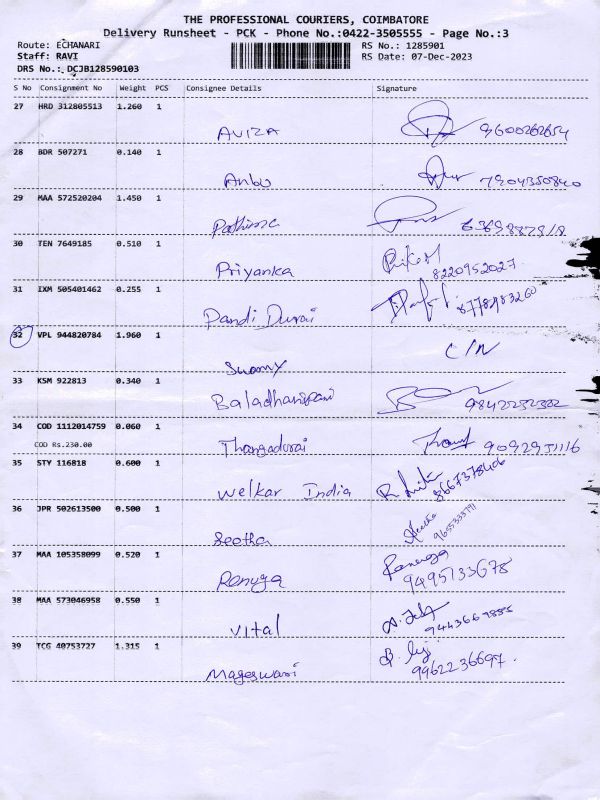 THE PROFESSIONAL COURIERS, COIMBATORE
Delivery Runsheet - PCK - Phone No.:0422-3505555 - Page No.:3
Route: ECHANARI RS No.: 1285901
Staff: RAVI RS Date: 07-Dec-2023
DRS No.: DCJB128590103
S No Consignment No Weight PCS Consignee Details Signature
27 HRD 312805513 1.260 1
AVIZA 9600262654
28 BDR 507271 0.140 1
Anbu 7904350840
29 MAA 572520204 1.450 1
Pathima
30 TEN 7649185 0.510 1
Priyanka 8220952027
31 IXM 505401462 0.255 1
Pandi Durai 8778983260
32 VPL 944820784 1.960 1
Swamy C/N
33 KSM 922813 0.340 1
34 COD 1112014759 0.060 1
COD Rs.230.00
Thangadurai
35 STY 116818 0.600 1
Welkar India 8667378406
36 JPR 502613500 0.500 1
Seetha Seetha
37 MAA 105358099 0.520 1
Renuga 9495133678
38 MAA 573046958 0.550 1
Vital
39 TCG 40753727 1.315 1
Mageswari 9962236697.